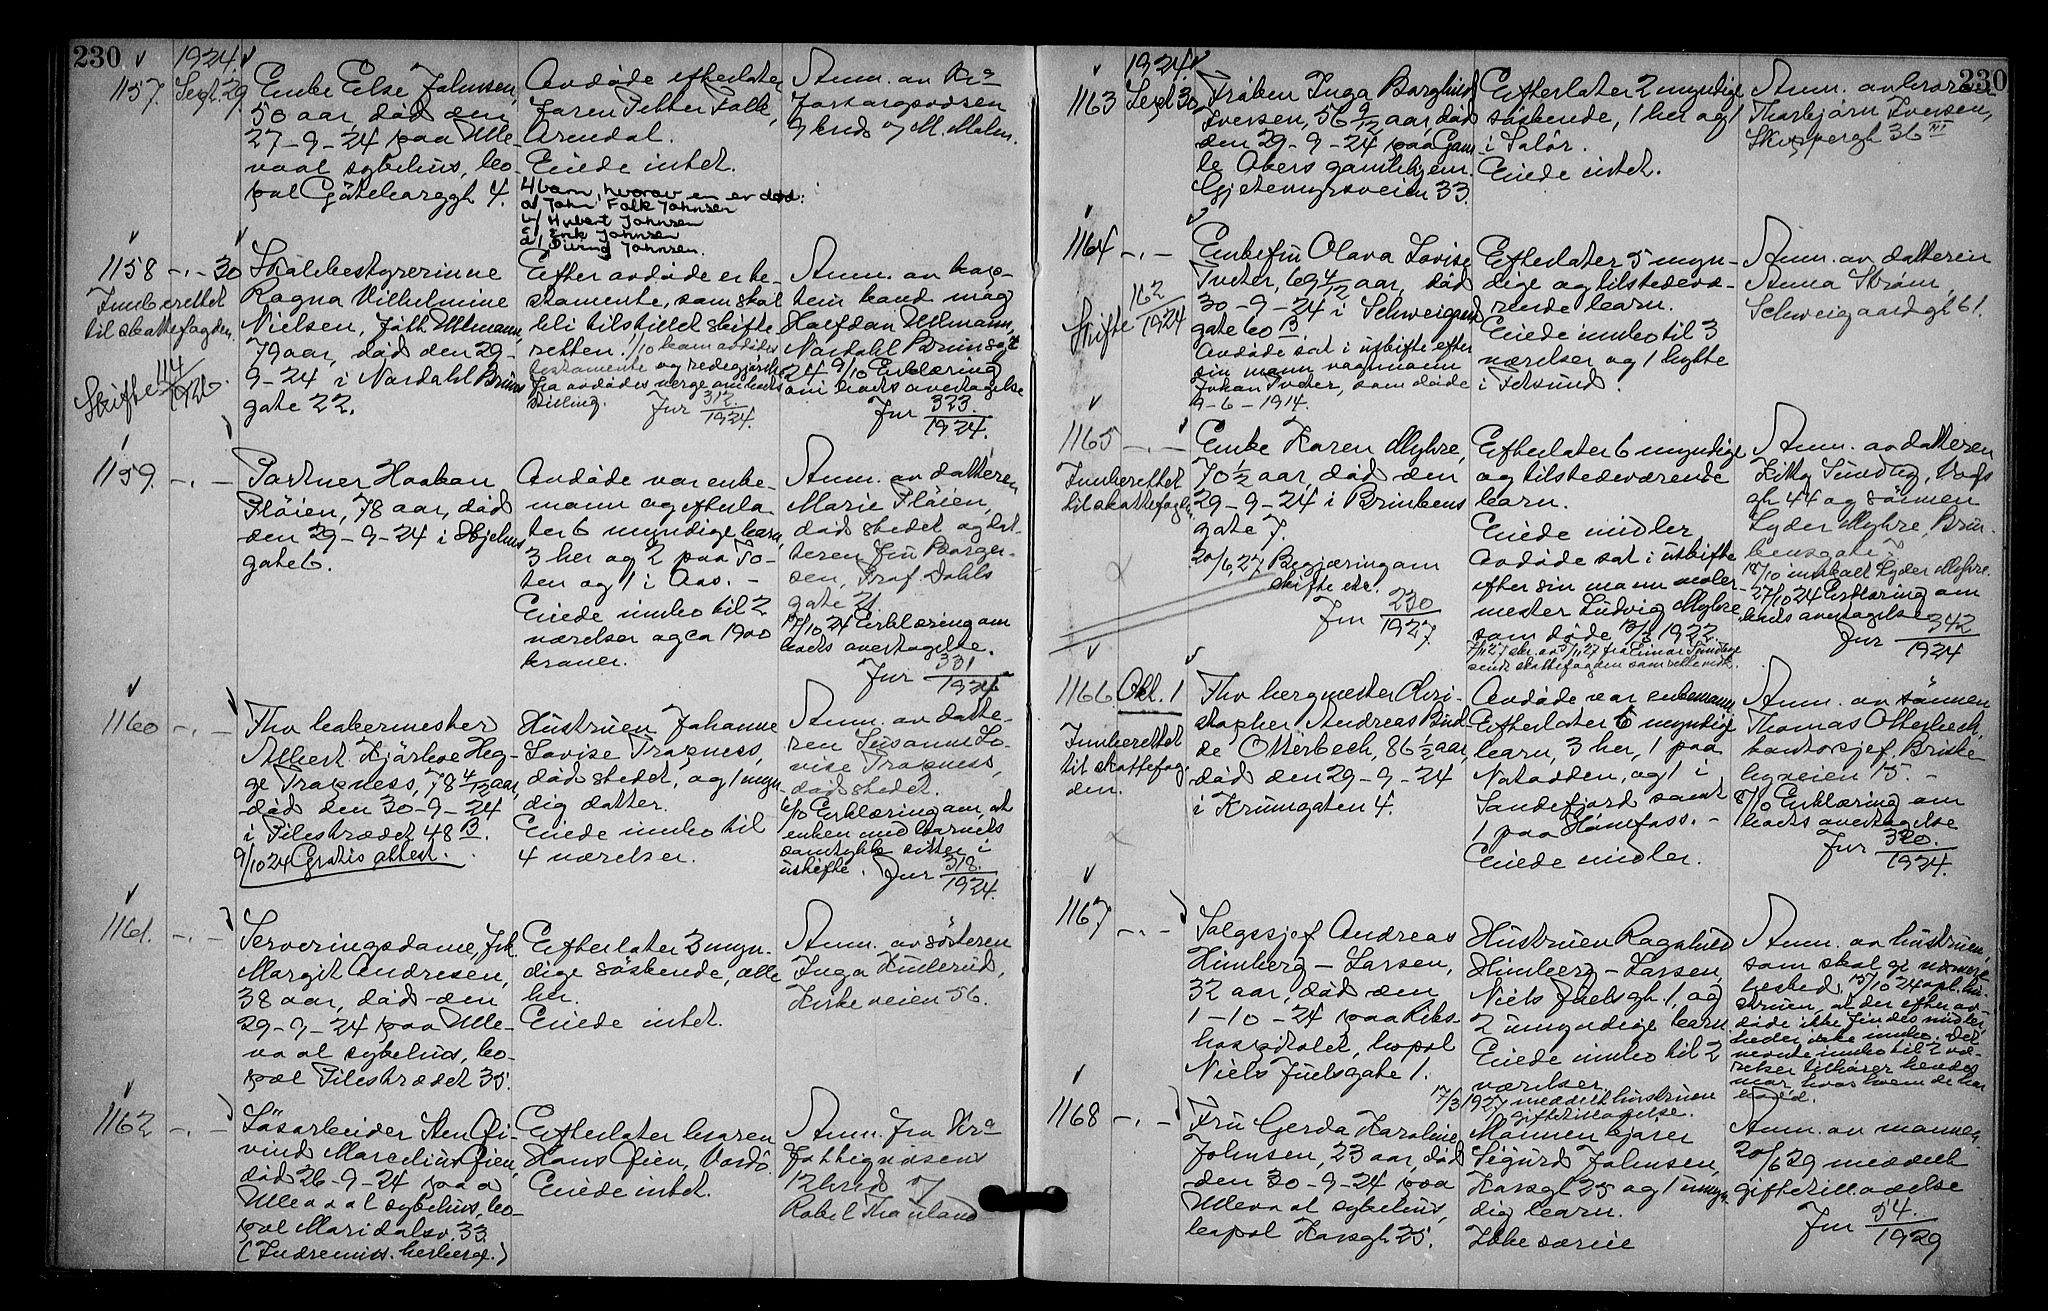 230
1924.
1157. Sept. 29
Enke Else Johnsen,
50 aar, død den
27-9-24 paa Ulle-
vaal sykehus, bo-
pæl Gøteborggt 4.
Avdøde efterlater
faren Petter Falk,
Arendal.
Eiede intet.
4 barn, hvorav en er død:
a/ John Falk Johnsen
b/ Hubert Johnsen
c/ Erik Johnsen
d/ Johnsen.
Anm. av Kra
Forsørgvæsen
9 kreds v/ M. Malm.
1158 -"- 30
Innberettet
til skattefogden.
Skifte 114/1926.
Skolebestyrerinne
Ragna Vilhelmine
Nielsen, født Ullmann,
79 aar, død den 29-
9-24 i Nordahl Bruns
gate 22.
Efter avdøde er te-
stamente, som skal
bli tilstillet skifte-
retten. 1/10 kom avdødes
testamente og redegjørelse
fra avdødes verge om hendes
stilling. Jnr 312/1924.
Anm. av kap-
tein cand mag
Halfdan Ullmann,
Nordahl Brunsgt
24 9/10 Erklæring
om boets overtagelse
Jnr 323/1924.
1159. -"-
Portner Haakon
Pløien, 78 aar, død
den 29-9-24 i Hjelms
gate 6.
Avdøde var enke-
mann og efterla-
ter 6 myndige barn,
3 her og 2 paa To-
ten og 1 i Aas. -
Eiede innbo til 2
værelser og ca 1900
kroner.
Anm. av datteren
Marie Pløien,
død stedet og dat-
teren fru Borger-
sen, Prof. Dahls
gate 21
17/10 24 Erklæring om
boets overtagelse.
Jnr 331/1924
1160 -"-
Fhv bakermester
Albert Kjærboe Heg-
ge Trapness, 78 4/12 aar,
død den 30-9-24
i Pilestrædet 48 B.
9/10 24 Gratis attest.
Hustruen Johanne
Lovise Trapness,
død stedet, og 1 myn-
dig datter.
Eiede innbo til
4 værelser.
Anm. av datte-
ren Susanne Lo-
vise Trapness,
død stedet.
6/10 Erklæring om, at
enken med barnets
samtykke sitter i
uskifte. Jnr 318./1924.
1161. -"-
Serveringsdame, frk
Margit Andresen,
38 aar, død den
29-9-24 paa Ulle-
vaal sykehus, bo-
pæl Pilestrædet 35.
Efterlater 3 myn-
dige søskende, alle
her.
Eiede intet.
Anm. av søsteren
Inga
Kirkeveien 56.
1162 -"-
Løsarbeider Sten Øi-
vind Marcelius Øien,
død 26-9-24 paa
Ullevaal sykehus, bo-
pæl Maridalsv. 33
(Indremiss. herberge)
Efterlater broren
Hans Øien, Vardø.
Eiede intet.
Anm. fra Kra
Fattigvæsen
12 kred v/
230
1924.
1163 Sept 30
Frøken Inga Borghild
Iversen, 56 9/12 aar, død
den 29-9-24 paa Gam-
le Akers gamlehjem
Gjetemyrsveien 33.
Efterlater 2 myndige
søskende, 1 her og 1
i Solør.
Eiede intet.
Anm. av broren
Thorbjørn Iversen,
36 III
1164 -"-
Skifte 162/1924
Enkefru Olava Lovise
Tveter, 69 4/12 aar, død
30-9-24 i Schweigaards
gate 60 B
Avdøde sat i uskifte efter
sin mann vognmann
Johan Tveter, som døde
9-6-1914.
Efterlater 5 myn-
dige og tilstedevæ-
rende barn.
Eiede innbo til 3
værelser og 1 hytte
i Fetsund.
Anm. av datteren
Anna Strøm,
Schweigaardsgt 61.
1165 -"-
Innberettet
til skattefogden
Enke Karen Myhre,
70 1/2 aar, død den
29-9-24 i Brinkens
gate 7.
20/6 27 Begjæring om
skifte etc.
Jnr 230/1927
Efterlater 6 myndige
og tilstedeværende
barn.
Eiede midler
Avdøde sat i uskifte
efter sin mann maler-
mester Ludvig Myhre
som døde 13/3 1922.
Anm. av datteren
gt 44 og sønnen
Lyder Myhre, Brin-
kensgate 7
18/10 innkalt Lyder Myhre
27/10 24 Erklæring om
boets overtagelse
Jnr 342/1924
1166 Okt. 1
Innberettet
til skattefog-
den.
Fhv bergmester Chri-
stopher Andreas Bud-
de Otterbech, 86 1/2 aar,
død den 29-9-24
i Krumgaten 4.
Avdøde var enkemann
Efterlater 6 myndige
barn, 3 her, 1 paa
Notodden, og 1 i
Sandefjord samt
1 paa Hønefoss. -
Eiede midler.
Anm. av sønnen
Thomas Otterbech,
kontorsjef, Briske-
byveien 15. -
8/10 Erklæring om
boets overtagelse
Jnr 320./1924.
1167 -"-
Salgssjef Andreas
Himberg-Larsen,
32 aar, død den
1-10-24 paa Riks-
hospitalet, bopæl
Niels Juelsgate 1.
Hustruen Ragnhild
Himberg-Larsen,
Niels Juelsgt. 1, og
2 umyndige barn
Eiede innbo til 2
værelser.
17/3 1927 meddelt hustruen
giftetilladelse.
Anm. av hustruen,
som skal gi nærmere
besked. 15/10 24 opl. hu-
struen, at der efter av-
døde ikke findes midler,
heller ikke innbo. Det
nevnte innbo til 2 væ-
relser tilhører hendes
mor, hvor hvem de har
bodd.
1168 -"-
Fru Gerda Karoline
Johnsen, 23 aar, død
den 30-9-24 paa
Ullevaal sykehus,
bopæl Korsgt 25.
Mannen kjører
Sigurd Johnsen,
Korsgt 25 og 1 umyn-
dig barn.
Ikke særeie
Anm. av mannen.
20/6 29 meddelt
giftetilladelse
Jnr 54./1929